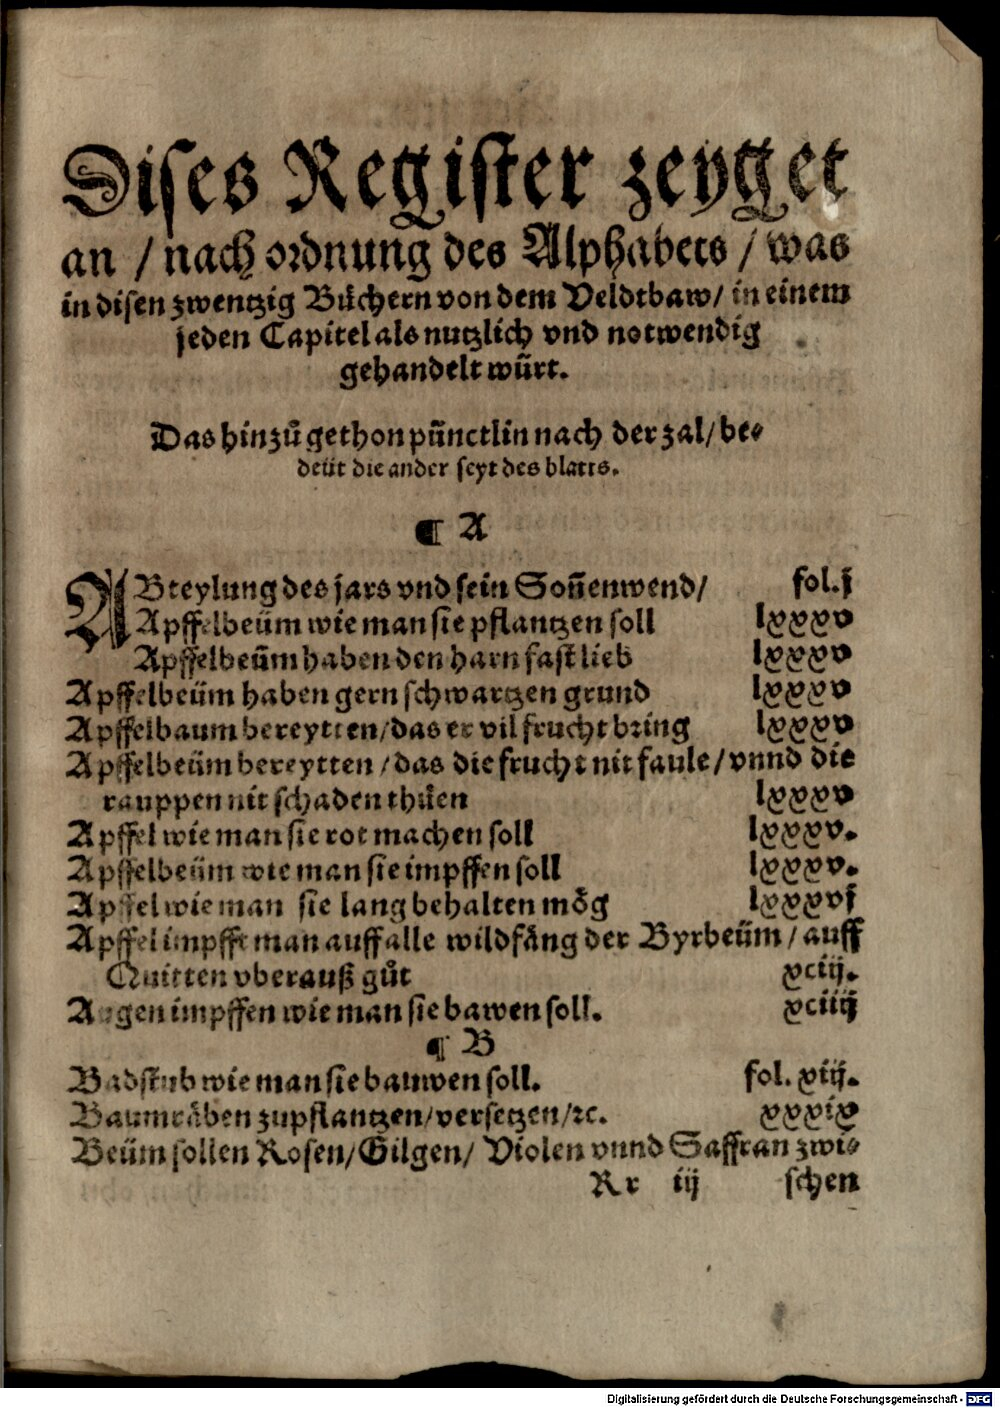 Dises Register zeyget
an / nach ordnung des Alphabets / was
in disen zwentzig Bůchern von dem Veldtbaw / in einem
jeden Capitel als nutzlich vnd notwendig
gehandelt würt.
Das hinzů gethon pünctlin nach der zal / be⸗
deüt die ander seyt des blatts.
¶ A
ABteylung des jars vnd sein Soñenwend / fol. j
Apffelbeüm wie man sie pflantzen soll lxxxv
Apffelbeüm haben den harn fast lieb lxxxv
Apffelbeüm haben gern schwartzen grund lxxxv
Apffelbaum bereytten / das er vil frucht bring lxxxv
Apffelbeüm bereytten / das die frucht nit faule / vnnd die
rauppen nit schaden thůen lxxxv
Apffel wie man sie rot machen soll lxxxv.
Apffelbeüm wie man sie impffen soll lxxxv.
Apffel wie man sie lang behalten mög lxxxvj
Apffel impfft man auff alle wildfäng der Byrbeüm / auff
Quitten vberauß gůt xciij.
Augen impffen wie man sie bawen soll. xciiij
¶ B
Badstub wie man sie bauwen soll. fol. xiij.
Baumräben zupflantzen / versetzen / ꝛc. xxxix
Beüm sollen Rosen / Gilgen / Violen vnnd Saffran zwi⸗
Rr iij schen
Digitalisierung gefördert durch die Deutsche Forschungsgemeinschaft - DFG